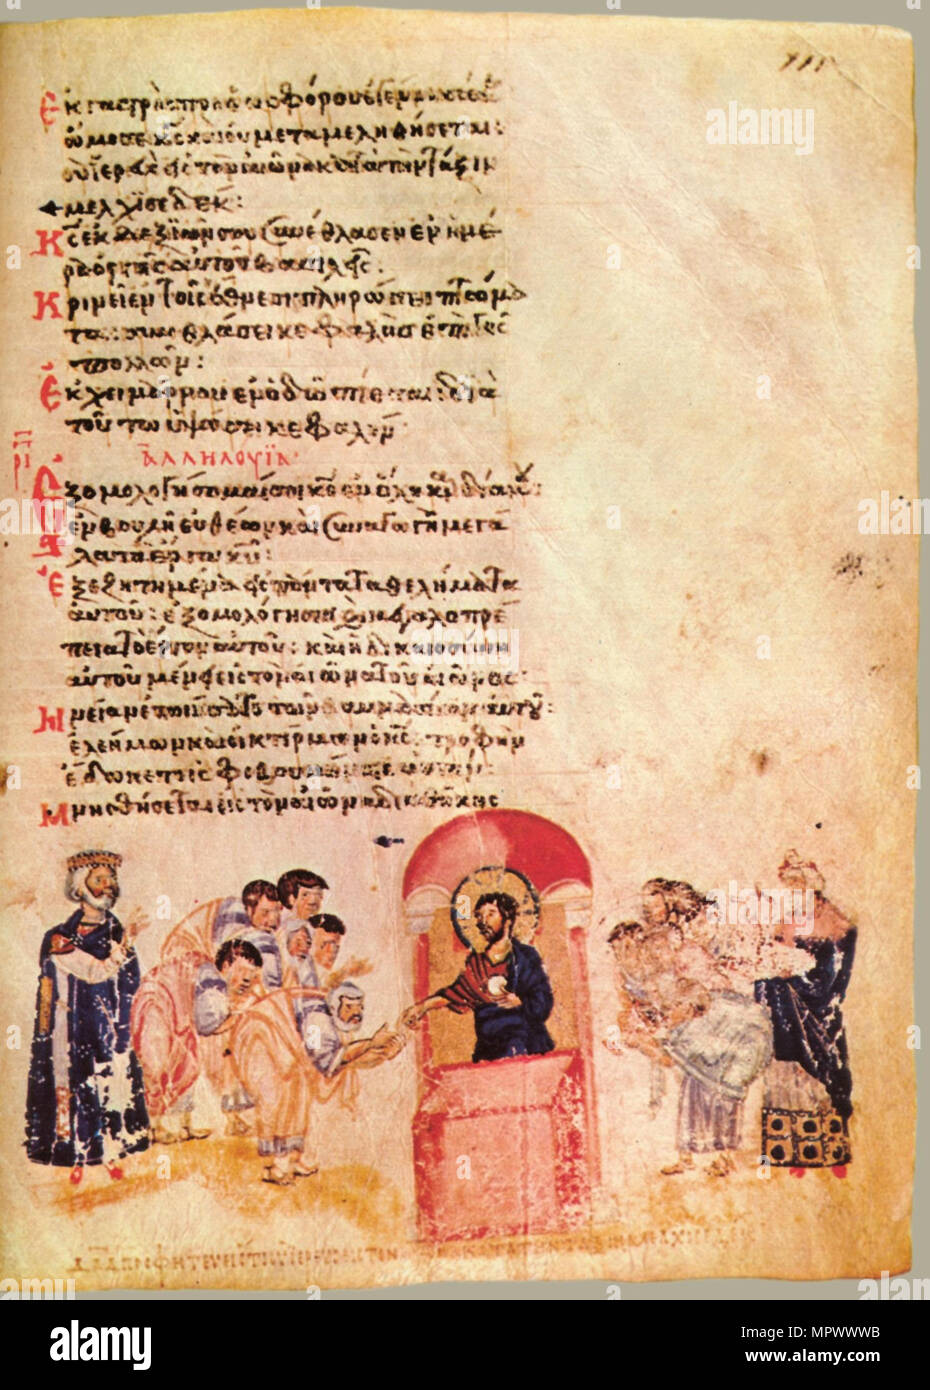 Ἐκ γαστρὸς πρὸ ἑωσφόρου ἐγέννησά σε
ὤμοσε κς καὶ οὐ μεταμεληθήσεται:
σὺ ἱερεὺς εἰς τὸν αἰῶνα κατὰ τὴν τάξιν
μελχϊσεδέκ:
Κς ἐκ δεξϊῶν σου συνέθλασεν ἐν ἡμέ
ρα ὀργῆς αὐτοῦ βασιλεῖς:
Κρινεῖ ἐν τοῖς ἔθνεσι πληρώσει πτώμα
τα: συνθλάσει κεφαλὰς ἐπὶ γῆς
πολλῶν:
Ἐκ χειμάρρου ἐν ὁδῶ πίεται: διὰ
τοῦτο ὑψώσει κεφαλήν:
ἈΛΛΗΛΟΥΪΑ
Ἐξομολογήσομαί σοι κε ἐν ὅλη καρδία μου:
ἐν βουλῆ εὐθέων καὶ συναγωγῆ μεγά
λα τὰ ἔργα κυ:
Ἐξεζητημένα εἰς πάντα τὰ θελήματα
αὐτοῦ: ἐξομολόγησις καὶ μεγαλοπρέ
πεια τὸ ἔργον αὐτοῦ: καὶ ἡ δικαιοσύνη
αὐτοῦ μένει εἰς τὸν αἰῶνα τοῦ αἰῶνος:
Μνείαν ἐποιήσατο τῶν θαυμασίων αὐτοῦ:
ἐλεήμων καὶ οἰκτίρμων ὁ κς: τροφὴν
ἔδωκε τοῖς φοβουμένοις αὐτόν:
Μνησθήσεται εἰς τὸν αἰῶνα διαθήκης
ΔΑΔ ΠΡΟΦΗΤΕΥΕΙ
alamy
Image ID: MPWWWB
www.alamy.com